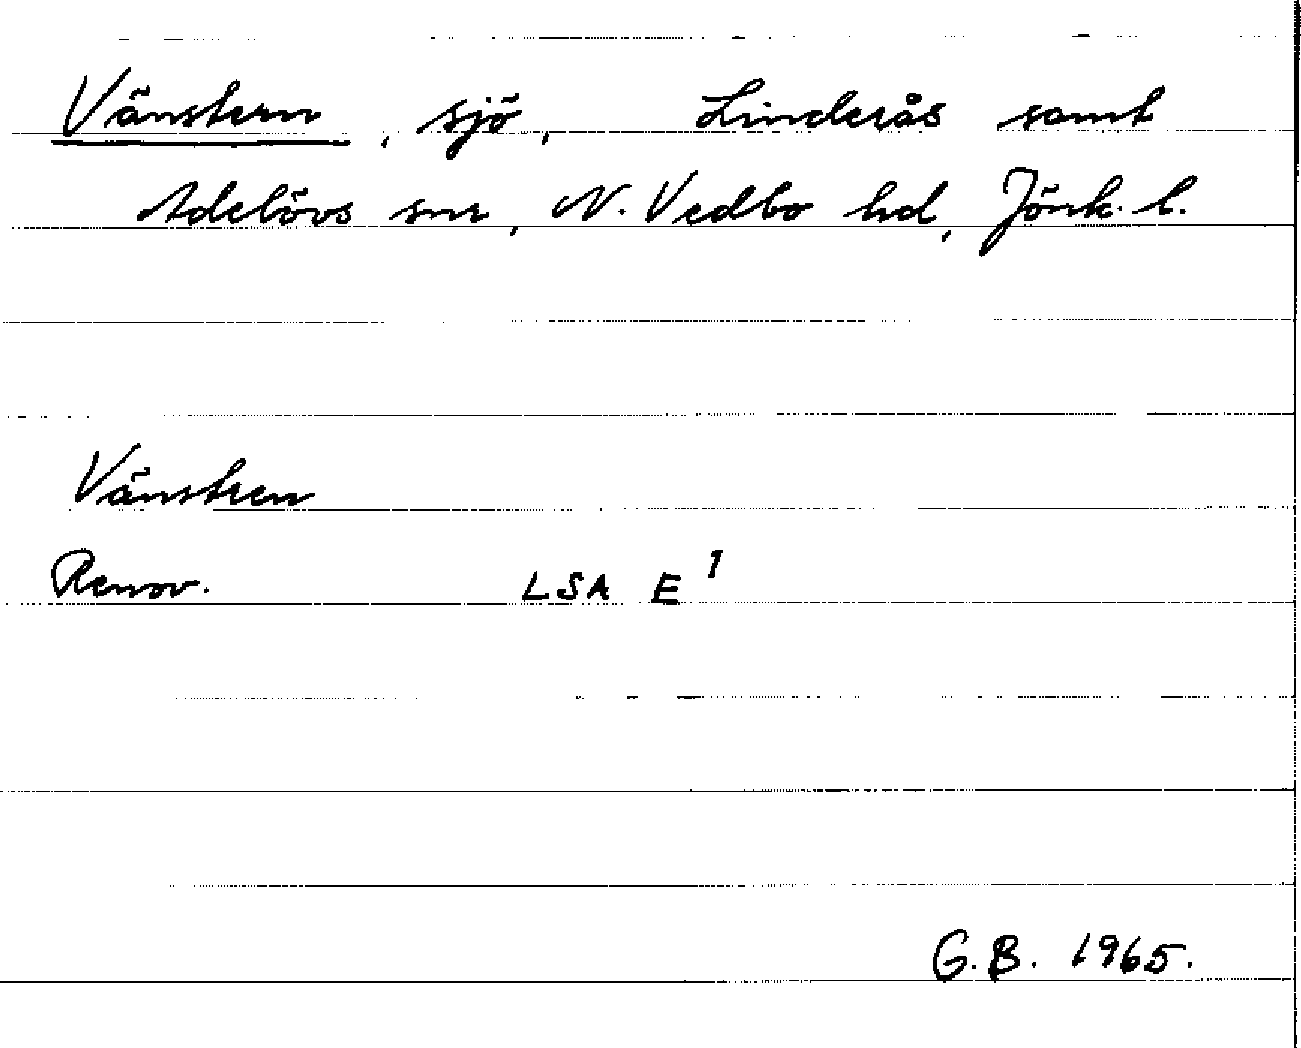 Vänstern, sjö, Linderås samt
Adelövs snr, N. Vedbo hd, Jönk. l.
Vänstren
Renov. LSA E¹
G.B. 1965.